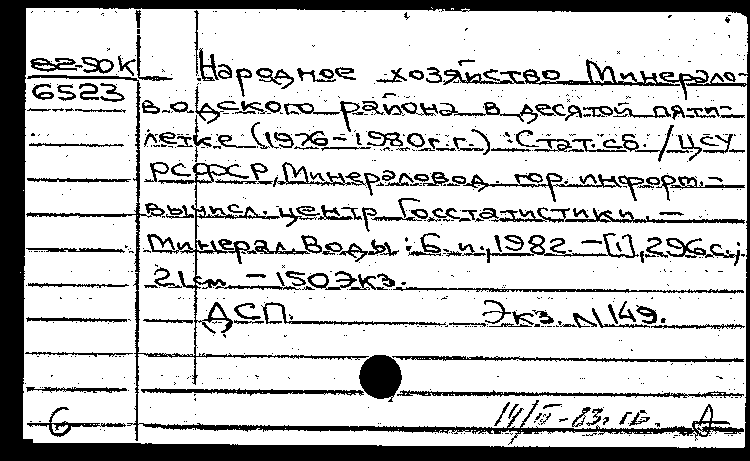 82-50К
6523
Народное хозяйство Минерало-
водского района в десятой пяти-
летке (1976-1980г.г.) : Стат. сб. / ЦСУ
РСФСР, Минераловод. гор. информ.-
вычисл. центр Госстатистики. —
Минерал. Воды : Б. и., 1982. - [1], 296с.;
21см. - 150экз.
ДСП. Экз. N 149.
14/III-83г.
6